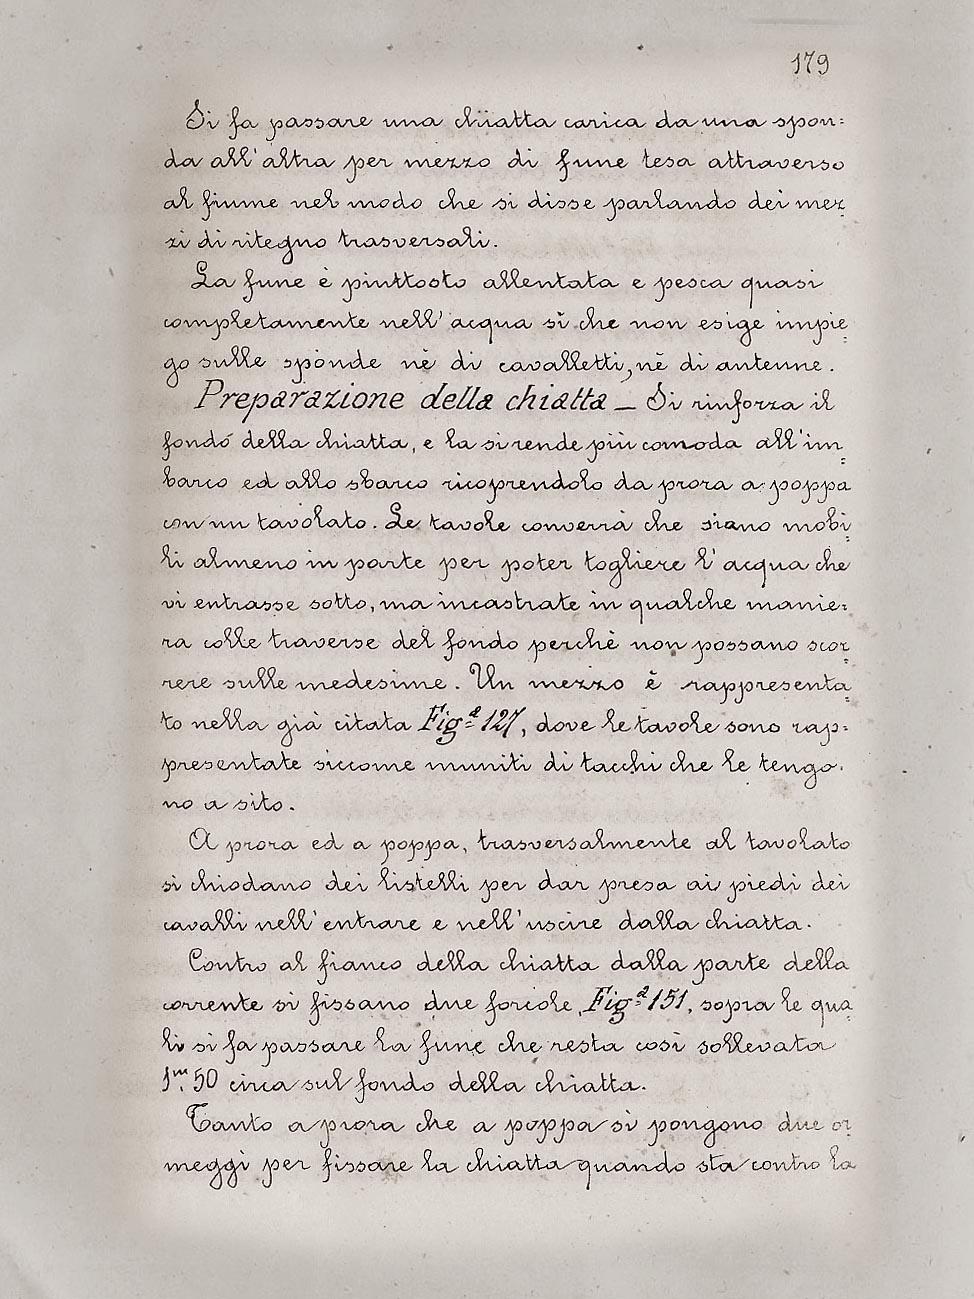 179
Si fa passare una chiatta carica da una spon=
da all'altra per mezzo di fune tesa attraverso
al fiume nel modo che si disse parlando dei mez=
zi di ritegno trasversali.
La fune è piuttosto allentata e pesca quasi
completamente nell'acqua sì che non esige impie=
go sulle sponde nè di cavalletti, nè di antenne.
Preparazione della chiatta — Si rinforza il
fondo della chiatta, e la si rende più comoda all'im=
barco ed allo sbarco ricoprendolo da prora a poppa
con un tavolato. Le tavole converrà che siano mobi=
li almeno in parte per poter togliere l'acqua che
vi entrasse sotto, ma incastrate in qualche manie=
ra colle traverse del fondo perchè non possano scor=
rere sulle medesime. Un mezzo è rappresenta=
to nella già citata Figª 127, dove le tavole sono rap=
presentate siccome muniti di tacchi che le tengo=
no a sito.
A prora ed a poppa, trasversalmente al tavolato
si chiodano dei listelli per dar presa ai piedi dei
cavalli nell'entrare e nell'uscire dalla chiatta.
Contro al fianco della chiatta dalla parte della
corrente si fissano due forcole, Figª 151, sopra le qua=
li si fa passare la fune che resta così sollevata
1m. 50 circa sul fondo della chiatta.
Tanto a prora che a poppa si pongono due or=
meggi per fissare la chiatta quando sta contro la